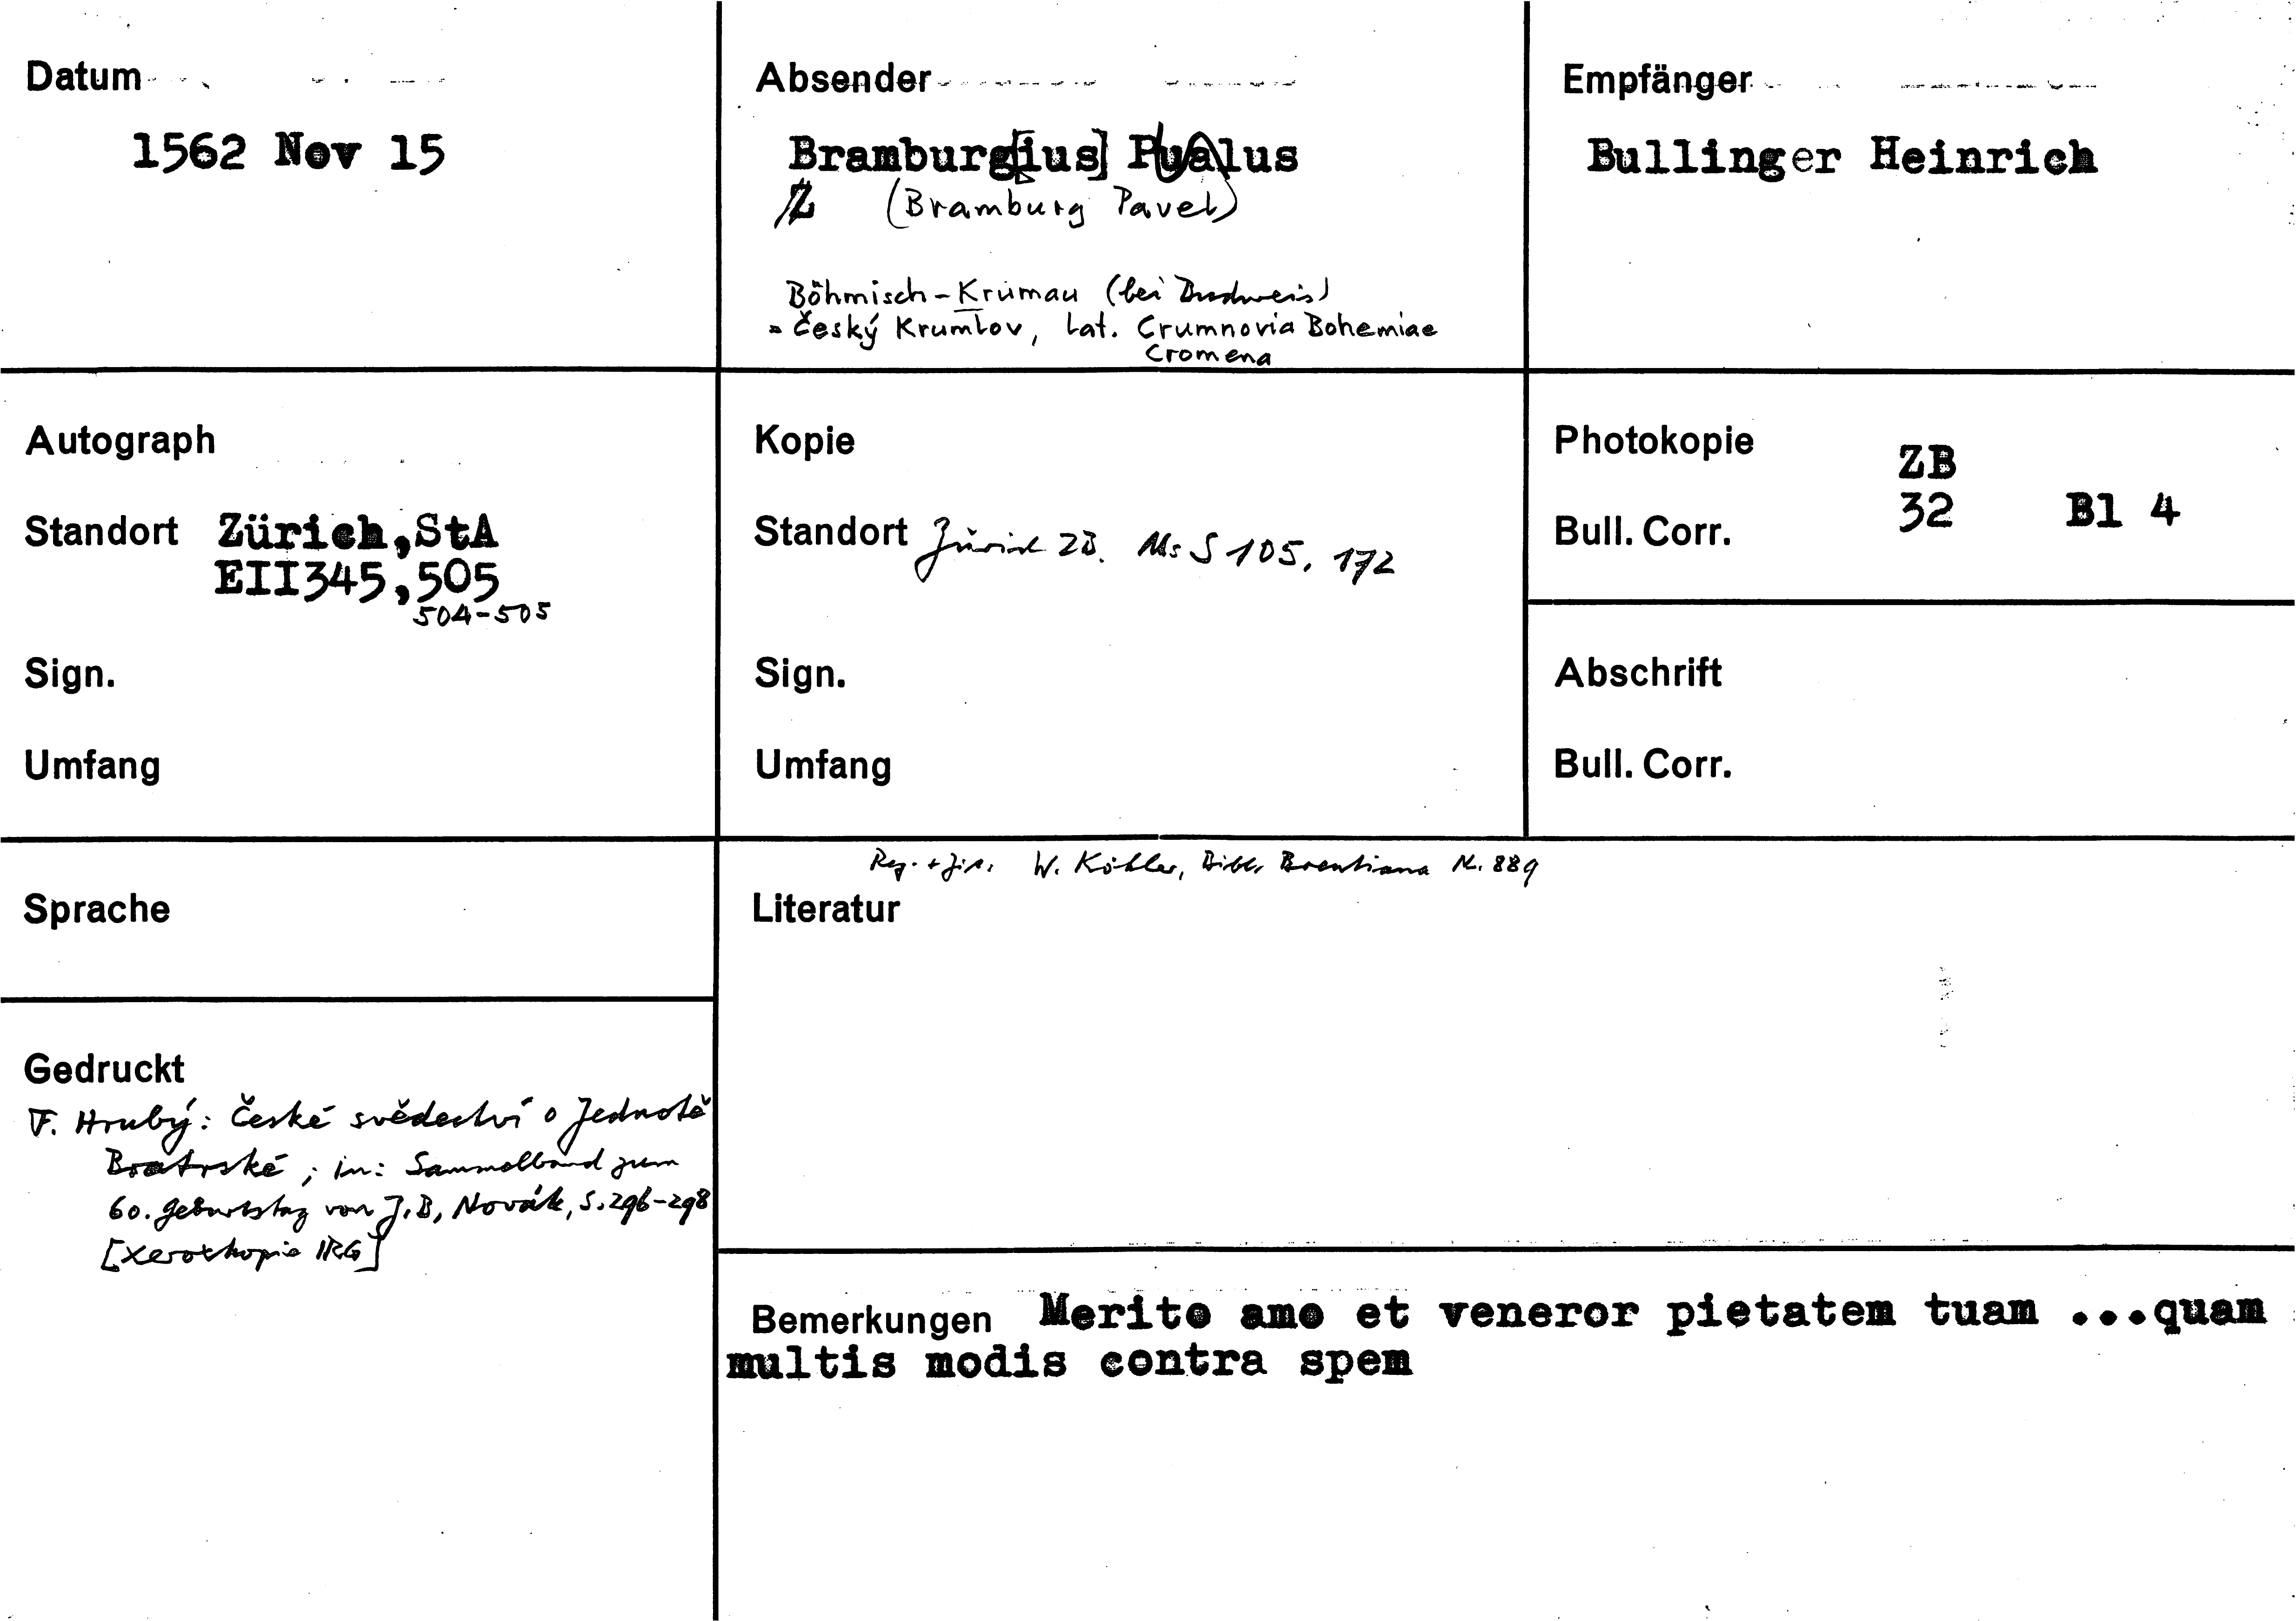 Datum
1562 Nov 15
Absender
Bramburg[ius] Paulus
(Bramburg Pavel)
Böhmisch-Krumau (bei Budweis)
= Český Krumlov, lat. Crumnovia Bohemiae
Cromena
Empfänger
Bullinger Heinrich
Autograph
Standort Zürich,StA
EII345,505
504-505
Sign.
Umfang
Kopie
Standort Zürich ZB. Ms S 105, 172
Sign.
Umfang
Photokopie ZB
Bull. Corr. 32 Bl 4
Abschrift
Bull. Corr.
Sprache
Reg. + W. Köhler, Bibl. Brentiana N. 889
Literatur
Gedruckt
F. Hrubý: České svědectví o Jednotě
Bratrské ; in: Sammelband zum
60. Geburtstag von J.B, Novák, S. 296-298
[Xeroxkopie IRG]
Bemerkungen Merito amo et veneror pietatem tuam ...quam
multis modis contra spem